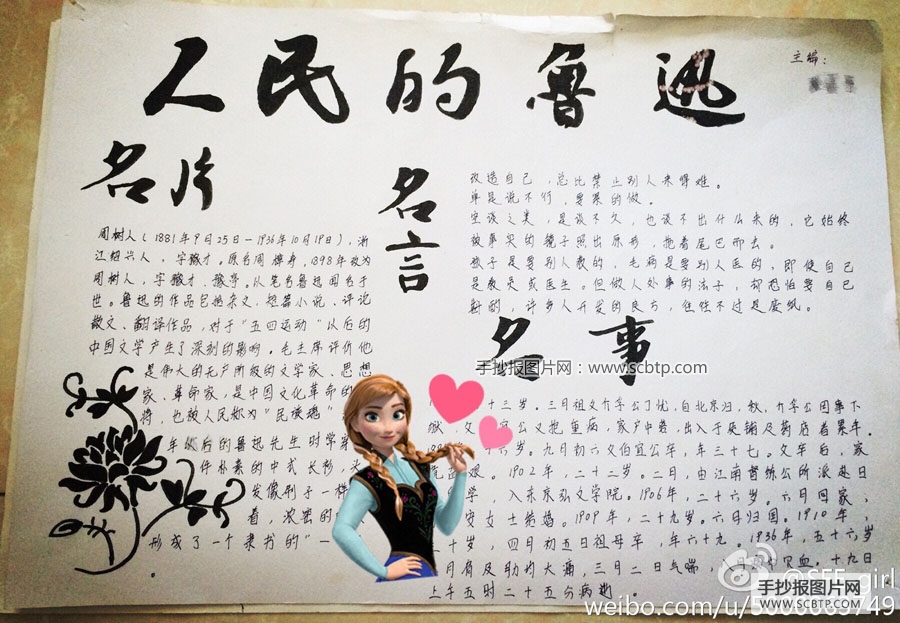 人民的鲁迅
主编：
名片
周树人（1881年9月25日-1936年10月19日），浙
江绍兴人，字豫才。原名周樟寿，1898年改为
周树人，字豫才、豫亭。以笔名鲁迅闻名于
世。鲁迅的作品包括杂文、短篇小说、评论
散文、翻译作品，对于“五四运动”以后的
中国文学产生了深刻的影响。毛主席评价他
是伟大的无产阶级的文学家、思想
家、革命家，是中国文化革命的
将，也被人民称为“民族魂”
年以后的鲁迅先生时常
件朴素的中式长衫，头
发像刷子一样
着，浓密的
形成了一个隶书的“一
。
名言
改造自己，总比禁止别人来得难。
单是说不行，要紧的做。
空谈之类，是谈不久，也谈不出什么来的，它始终
被事实的镜子照出原形，拖着尾巴而去。
孩子是要别人教的，毛病是要别人医的，即使自己
是教员或医生。但做人处事的法子，却恐怕要自己
斟酌，许多人开来的良方，往往不过是废纸。
名事
手抄报图片网：www.scbtp.com
十三岁。三月祖父介孚公丁忧，自北京归，秋，介孚公因事下
狱，父 宜公又抱重病，家产中落，出入于质铺及药店者累年。
六岁。九月初六父伯宜公卒，年三十七。父卒后，家
1902年，二十二岁。二月，由江南督练公所派赴日
学，入东京弘文学院。1906年，二十六岁。六月回家，
安女士结婚。1909年，二十九岁。六月归国。1910年，
十岁，四月初五日祖母卒，年六十九。1936年，五十六岁
月肩及肋均大痛，三月二日气喘，
十九日
上午五时二十五分病逝。
@SEE_girl
手抄报图片网
WWW.SCBTP.COM